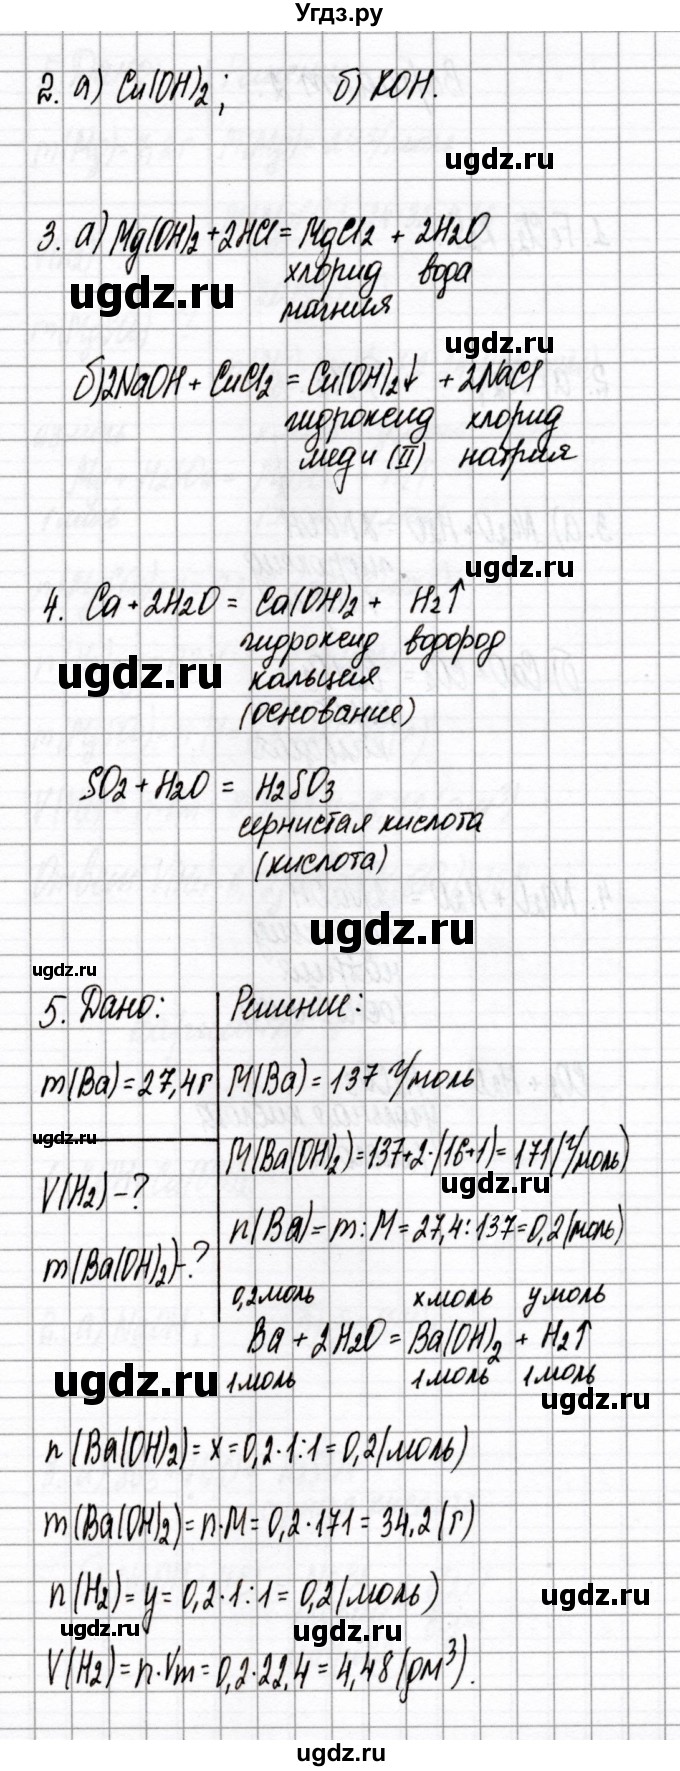 Угдз.ру
2. а) Cu(OH)2; б) KOH.
ugdz.ru
3. а) Mg(OH)2 + 2HCl = MgCl2 + 2H2O
хлорид вода
ugdz.ru
магния
ugdz.ru
б) 2NaOH + CuCl2 = Cu(OH)2↓ + 2NaCl
гидроксид хлорид
меди (II) натрия
ugdz.ru
4. Ca + 2H2O = Ca(OH)2 + H2↑
гидроксид водород
ugdz.ru
кальция
(основание)
SO2 + H2O = H2SO3
сернистая кислота
(кислота)
ugdz.ru
ugdz.ru
5. Дано: Решение:
m(Ba) = 27,4г M(Ba) = 137 г/моль
ugdz.ru
M(Ba(OH)2) = 137+2·(16+1) = 171(г/моль)
ugdz.ru
V(H2) - ?
n(Ba) = m : M = 27,4 : 137 = 0,2(моль)
m(Ba(OH)2) - ?
0,2моль xмоль yмоль
Ba + 2H2O = Ba(OH)2 + H2↑
ugdz.ru
1моль 1моль 1моль
ugdz.ru
n(Ba(OH)2) = x = 0,2·1:1 = 0,2(моль)
m(Ba(OH)2) = n·M = 0,2·171 = 34,2(г)
n(H2) = y = 0,2·1:1 = 0,2(моль)
ugdz.ru
ugdz.ru
ugdz.ru
V(H2) = n·Vm = 0,2·22,4 = 4,48(дм³).
ugdz.ru